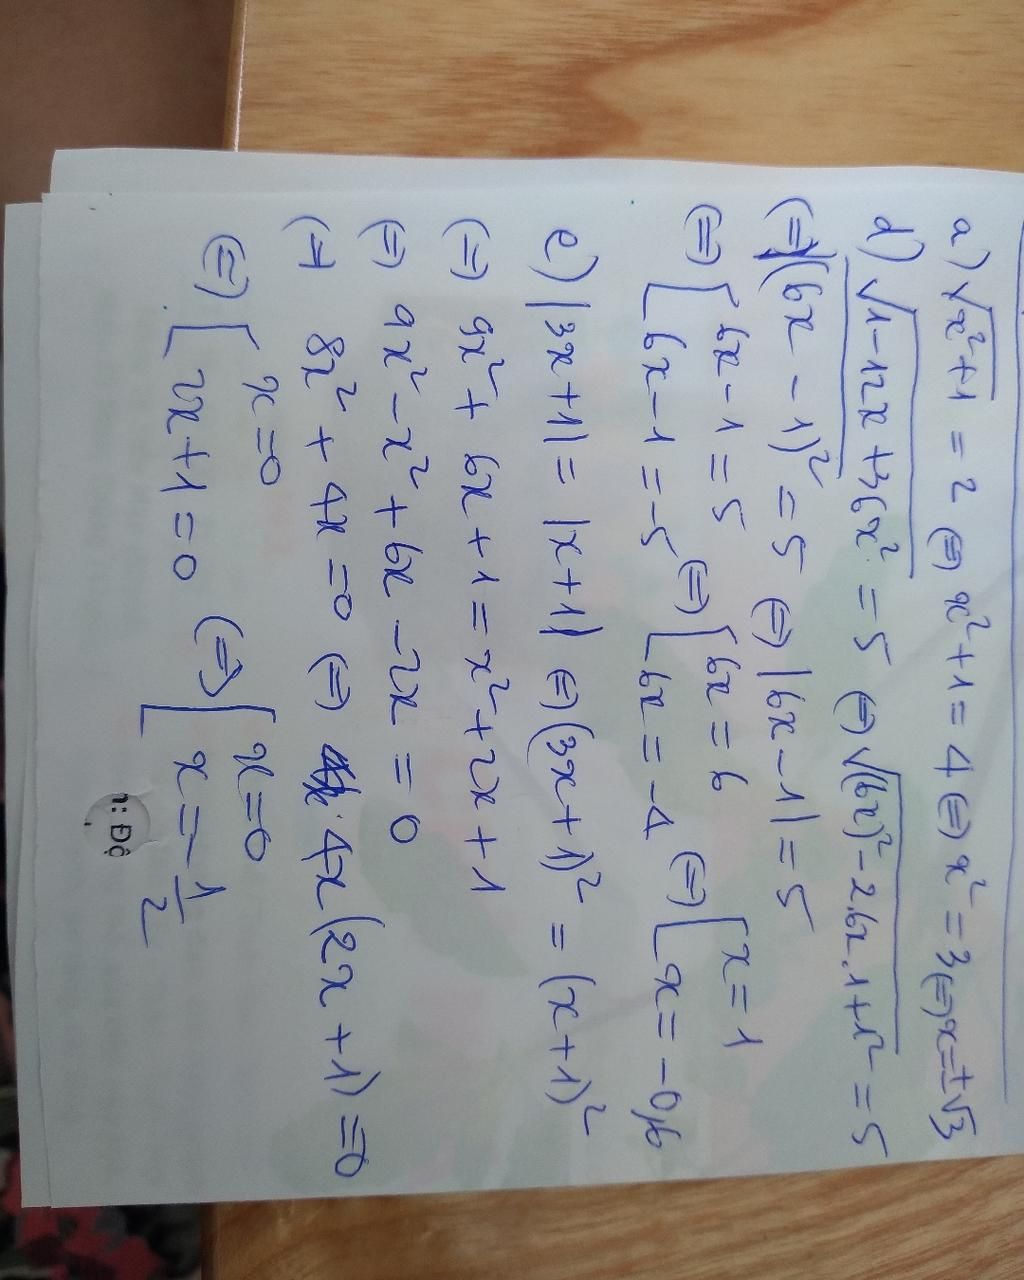 a) √(x²+1) = 2 (=) x²+1 = 4 (=) x² = 3 (=) x = ±√3
d) √(1-12x+36x²) = 5 (=) √((6x)²-2.6x.1+1²) = 5
(=) √((6x-1)²) = 5 (=) |6x-1| = 5
(=) [ 6x-1 = 5 (=) [ 6x = 6 (=) [ x = 1
6x-1 = -5 6x = -4 x = -0,6
e) |3x+1| = |x+1| (=) (3x+1)² = (x+1)²
(=) 9x² + 6x + 1 = x² + 2x + 1
(=) 9x² - x² + 6x - 2x = 0
(=) 8x² + 4x = 0 (=) 4x(2x+1) = 0
(=) [ x = 0 (=) [ x = 0
2x+1 = 0 x = -1/2
: Độ